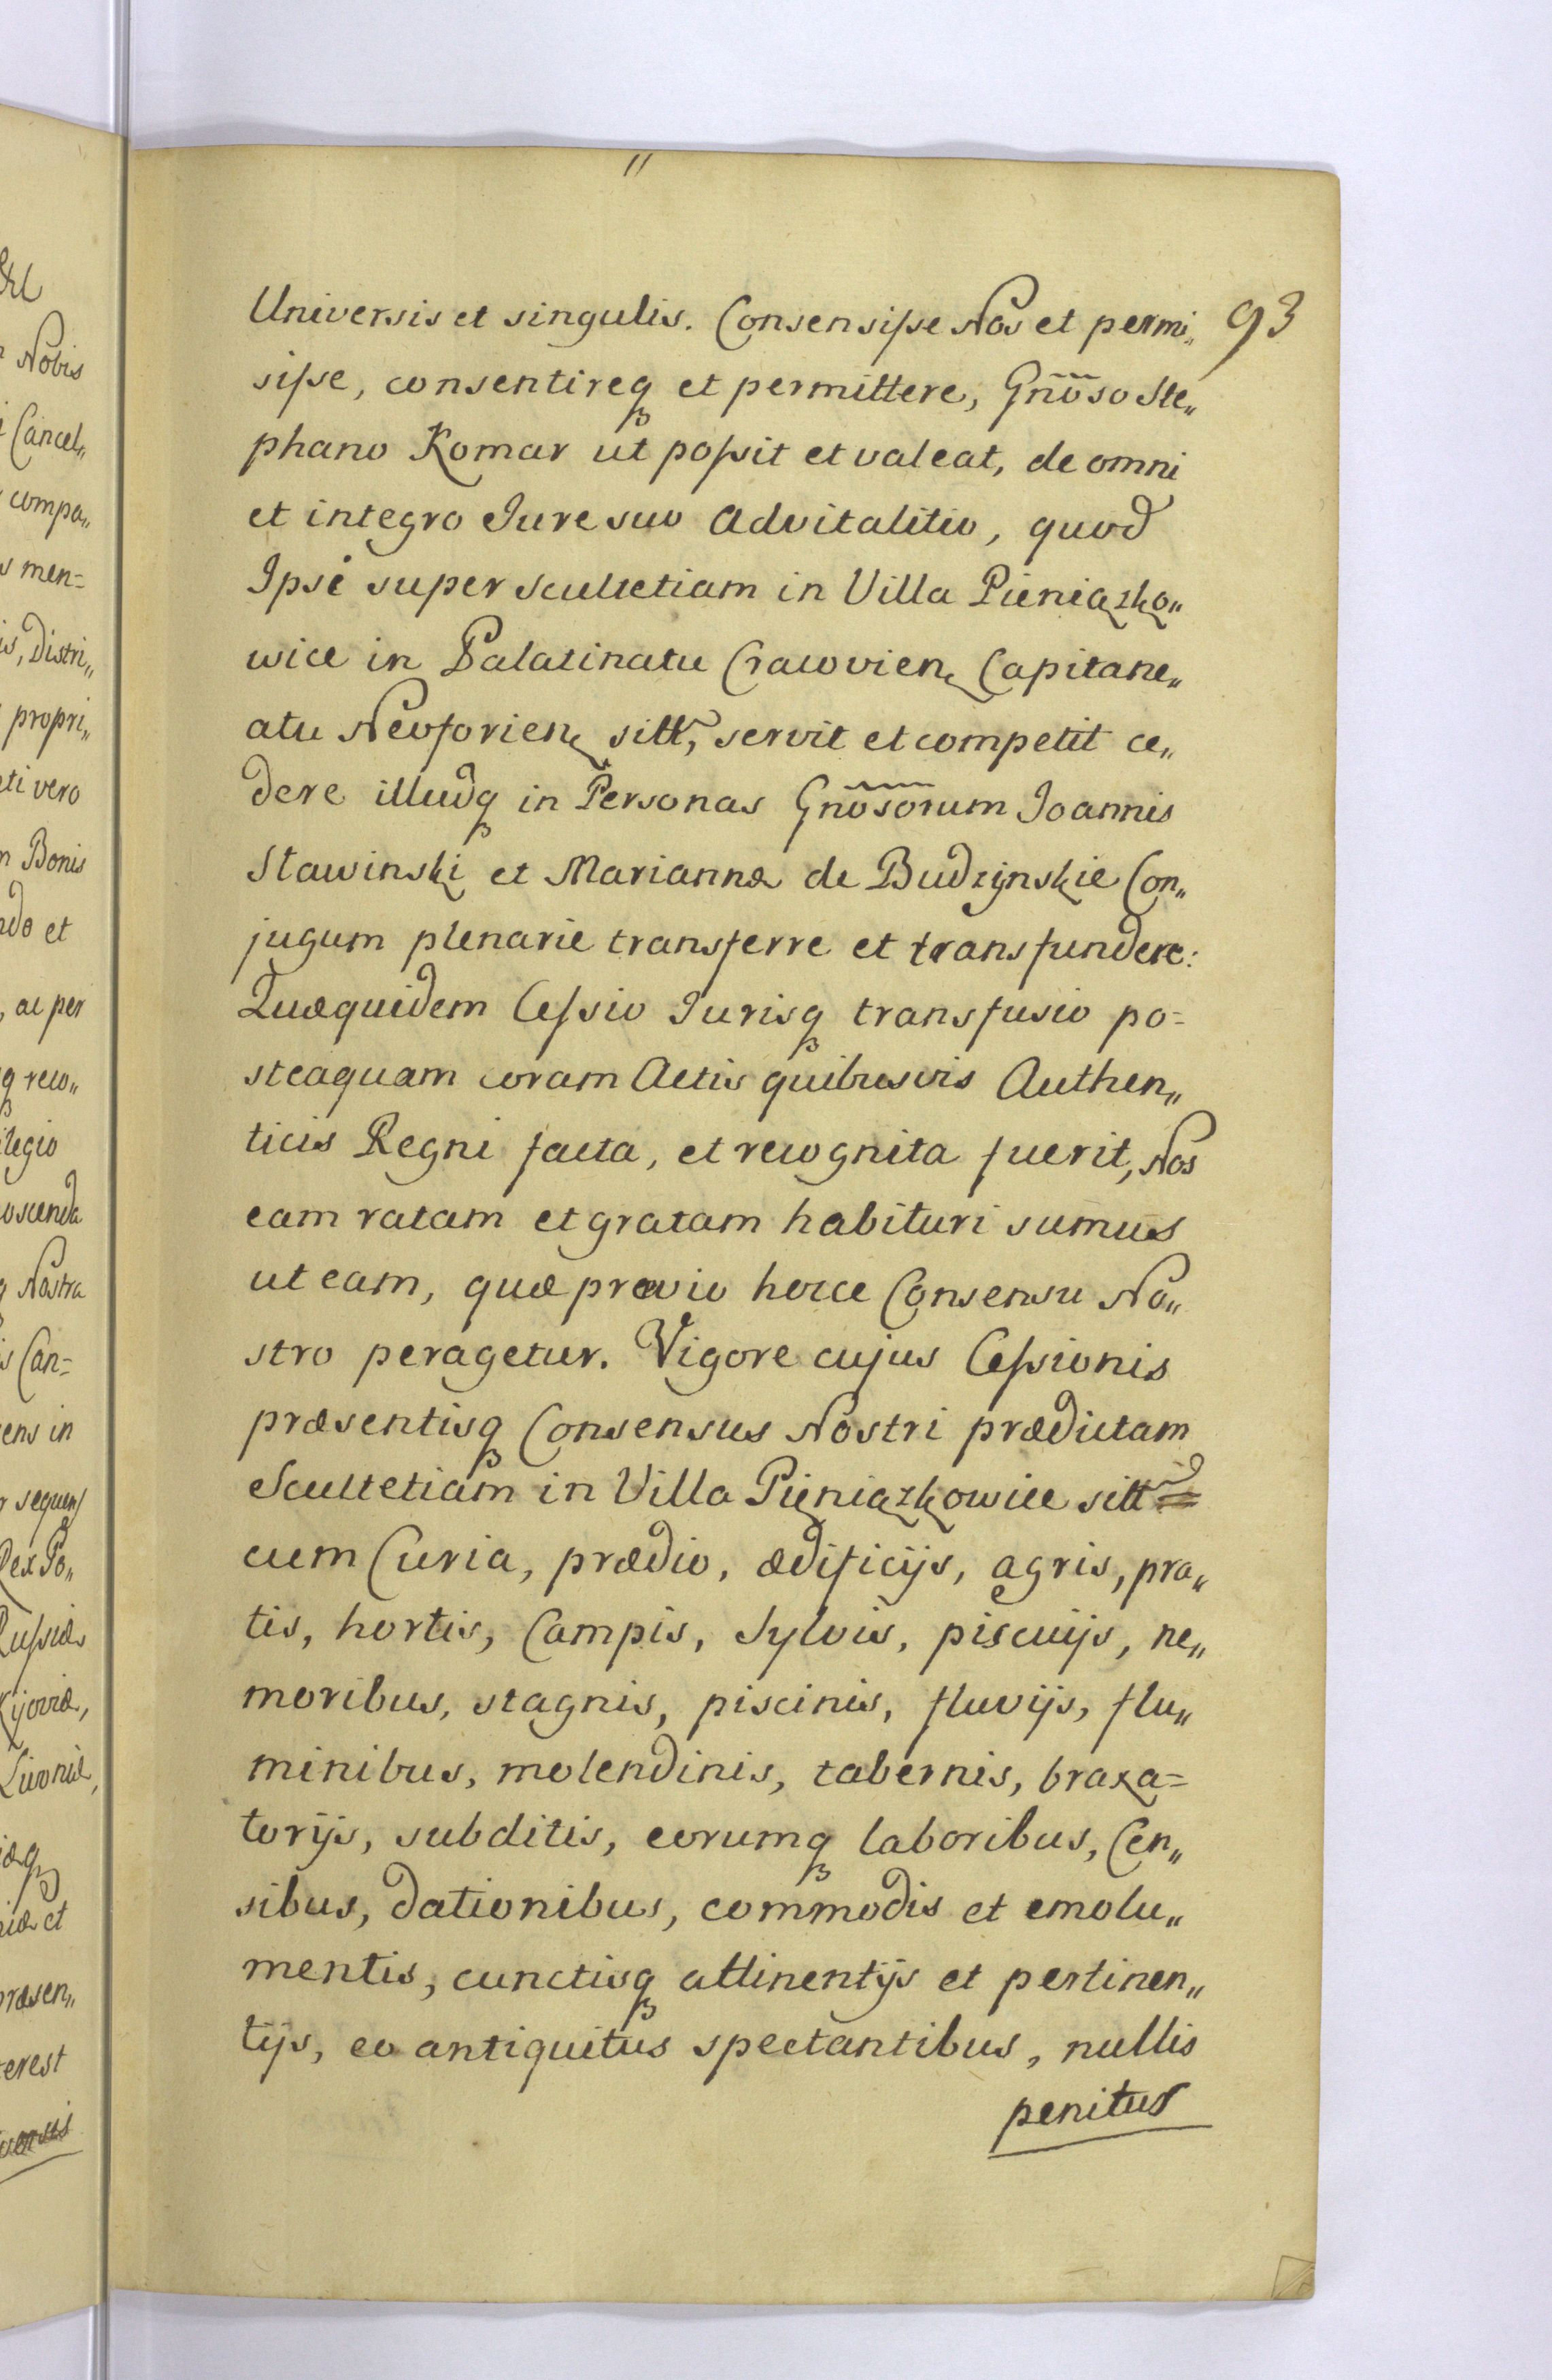 93
Universis et singulis. Consensisse Nos et permi„
sisse, consentireq₃ et permittere, Gnõso Ste„
phano Komar ut possit et valeat, de omni
et integro Jure suo Advitalitio, quod
Ipsi super Scultetiam in Villa Pieniążko„
wice in Palatinatu Cracovien Capitane„
atu Neoforien sitt, servit et competit ce„
dere illudq₃ in Personas Gnõsorum Joannis
Stawinski et Mariannæ de Budzynskie Con„
jugum plenarie transferre et transfundere:
Quæquidem Cessio Jurisq₃ transfusio po=
steaquam coram Actis quibusvis Authen„
ticis Regni facta, et recognita fuerit, Nos
eam ratam et gratam habituri sumus
ut eam, quæ prævio hocce Consensu No„
stro peragetur. Vigore cujus Cessionis
præsentisq₃ Consensus Nostri prædictam
Scultetiam in Villa Pieniążkowice sitt
cum Curia, prædio, ædificijs, agris, pra„
tis, hortis, Campis, Sylvis, piscuijs, ne„
moribus, stagnis, piscinis, fluvijs, flu„
minibus, molendinis, tabernis, braxa=
torijs, subditis, eorumq₃ laboribus, Cen„
sibus, dationibus, commodis et emolu„
mentis, cunctisq₃ attinentijs et pertinen„
tijs, eo antiquitus spectantibus, nullis
penitus
Nobis
Cancel„
compa„
men=
is, Distri„
propri„
eti vero
Bonis
ndo et
, ac per
q₃ reco„
ilegio
oscenda
Nostra
Can=
ens in
sequens
Rex Po„
Russiæ
Kijoviæ,
Livoniæ,
niæ et
præsen„
erest